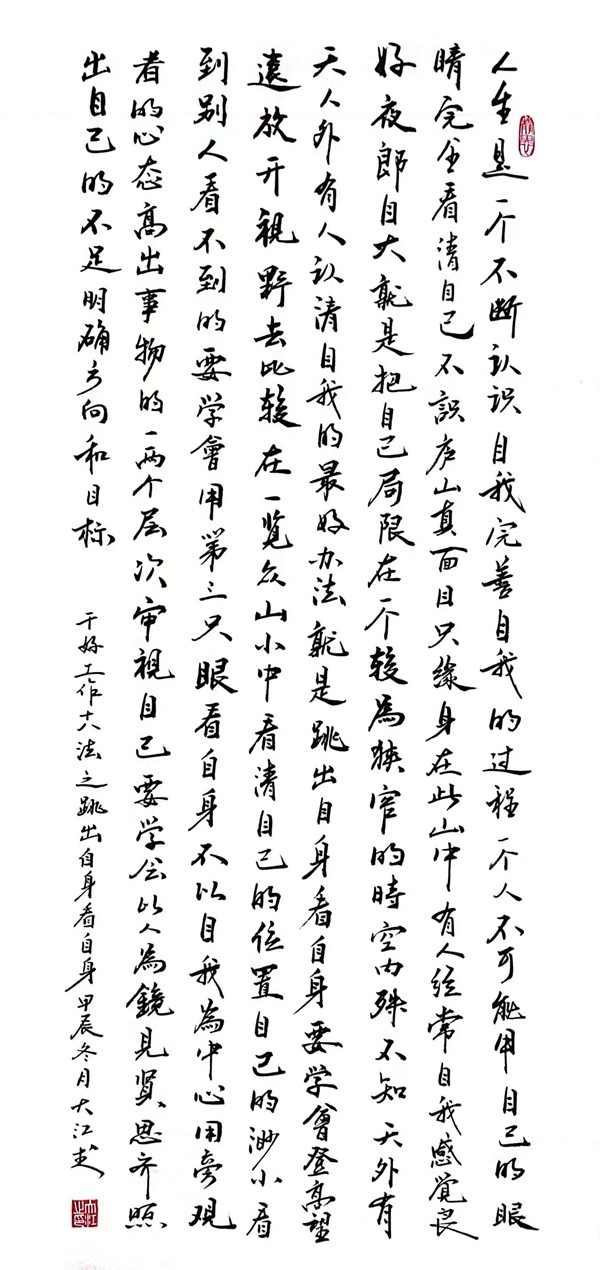 人生是一个不断认识自我完善自我的过程一个人不可能用自己的眼
睛完全看清自己不误庐山真面目只缘身在此山中有人经常自我感觉良
好夜郎自大就是把自己局限在一个较为狭窄的時空内殊不知天外有
天人外有人认清自我的最好办法就是跳出自身看自身要学會登高望
遠放开視野去比较在一览众山小中看清自己的位置自己的渺小看
到别人看不到的要学會用第三只眼看自身不以自我為中心用旁观
者的心态高出事物的一两个层次审視自己要学会以人為鏡見賢思齐照
出自己的不足明确方向和目标
干好工作十八法之跳出自身看自身甲辰冬月大江书
大江